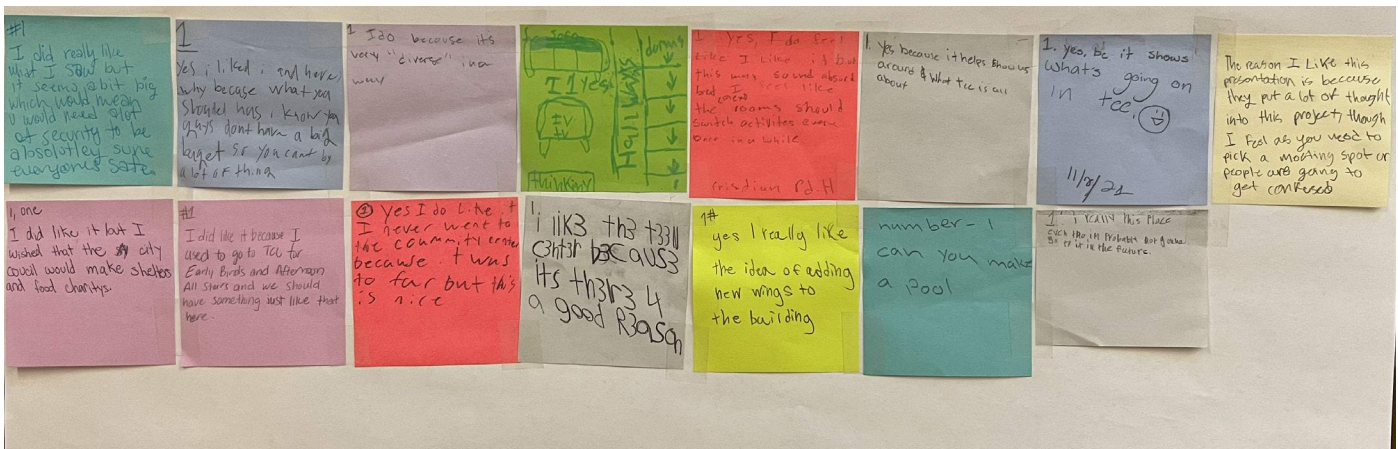 #1
I did really like
what I saw but
it seems a bit big
which would mean
u would need alot
of security to be
absolutley sure
everyones safe.
1
Yes i liked i and heres
why becase what you
shoulet has i know you
guys dont have a big
buget so you cant by
a lot of thing
1 I do because its
very "diverse" in a
way
Sofa
I 1 Yes!
TV
thinking
Hallways
dorms
1. Yes, I do feel
like I like it but
this may sound absurd
but I feel like
the rooms should
switch activites every
once in a while
Pd. H
1. Yes because it helps show us
around & what tcc is all
about
1. yes, bc it shows
whats going on
in tcc.
11/8/21
The reason I Like this
presontation is because
they put a lot of thought
into this project, though
I Feel as you need to
pick a meeting spot or
people are going to
get confused
1, one
I did like it but I
wished that the city
would make shelters
and food charitys.
#1
I did like it because I
used to go to TCU for
Early Birds and Afternoon
All Stars and we should
have something just like that
here.
① Yes I do Like it
I never went to
the community center
because it was
to far but this
is nice
1
i liK3 th3 t33n
c3nt3r b3CaUS3
its th3r3 4
a good R3ason
1#
yes I really like
the idea of adding
new wings to
the building
number-1
can you make
a pool
1. i really this Place
even tho im Probably not gonna
go to it in the future.